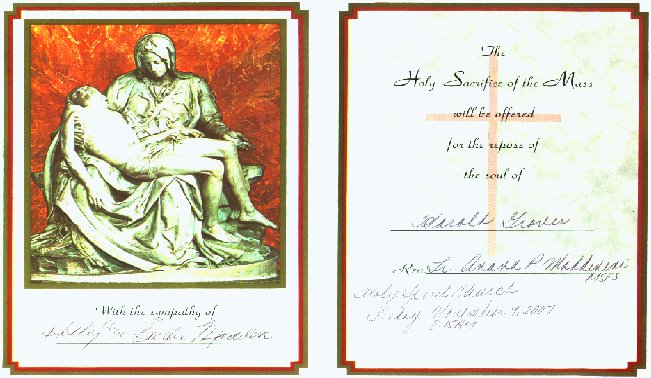 With the sympathy of
The
Holy Sacrifice of the Mass
will be offered
for the repose of
the soul of
Harold
Rev. Fr. Anand P
MSFS
Holy Church
Friday November 9, 2007